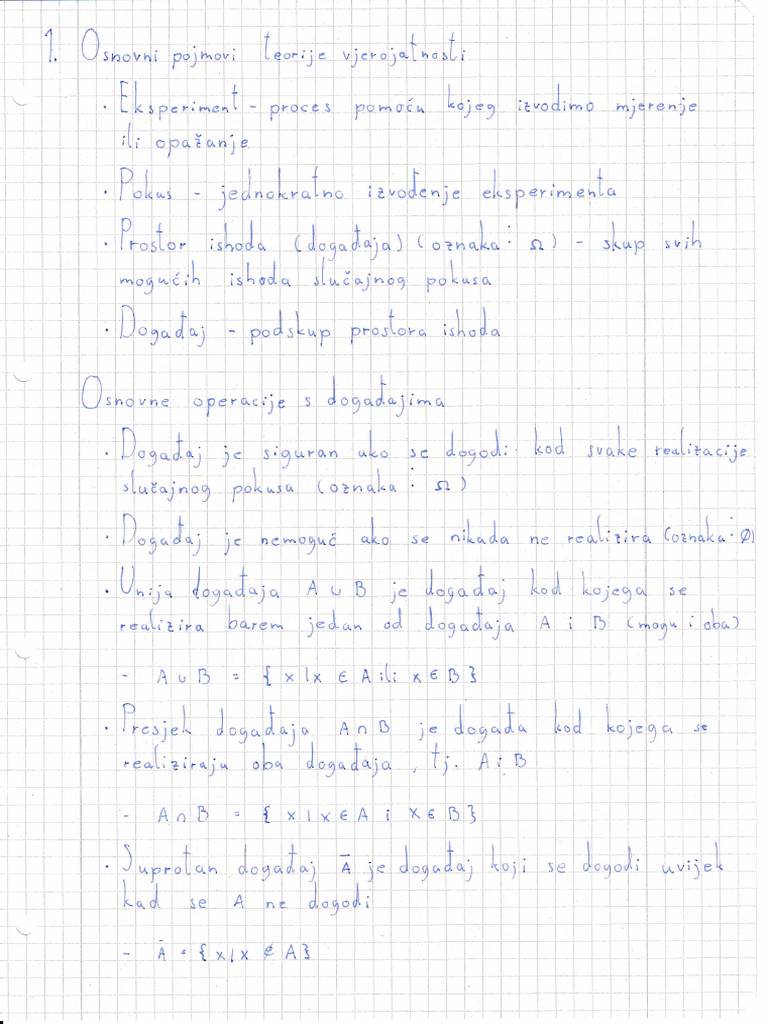 1. Osnovni pojmovi teorije vjerojatnosti
· Eksperiment - proces pomoću kojeg izvodimo mjerenje
ili opažanje
· Pokus - jednokratno izvođenje eksperimenta
· Prostor ishoda (događaja) (oznaka: Ω) - skup svih
mogućih ishoda slučajnog pokusa
· Događaj - podskup prostora ishoda
Osnovne operacije s događajima
· Događaj je siguran ako se dogodi kod svake realizacije
slučajnog pokusa (oznaka: Ω)
· Događaj je nemoguć ako se nikada ne realizira (oznaka: ∅)
· Unija događaja A ∪ B je događaj kod kojega se
realizira barem jedan od događaja A i B (mogu i oba)
- A ∪ B = { x | x ∈ A ili x ∈ B }
· Presjek događaja A ∩ B je događa kod kojega se
realiziraju oba događaja, tj. A i B
- A ∩ B = { x | x ∈ A i x ∈ B }
· Suprotan događaj Ā je događaj koji se dogodi uvijek
kad se A ne dogodi
- Ā = { x | x ∉ A }